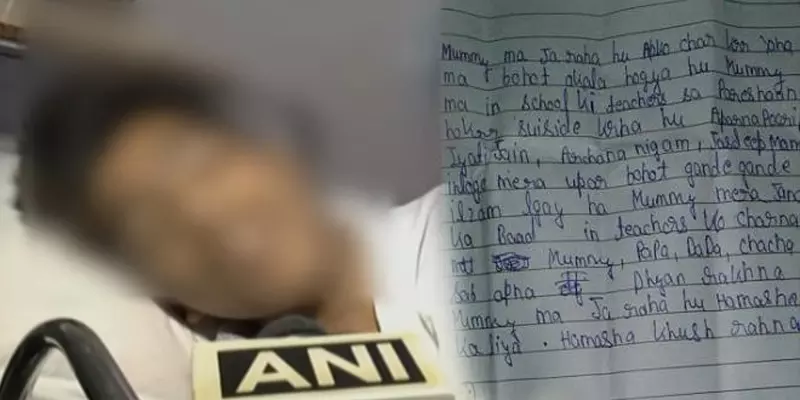 ANI
Mummy ma Ja raha hu Apko char kar
ma bohot akala hogya hu Mummy
ma in school ki teachers sa Pareshann
hokar suiside krha hu
Jyoti Jain, Archana nigam,
mera upar bohot gande gande
ilzam lgay ha Mummy mera Jana
ka Baad in teachers ko charna
Mummy, PaPa, DaDa, chacha
sab apna Dhyan rakhna
Mummy ma Ja raha hu Hamasha
ka liya. Hamasha khush rahna